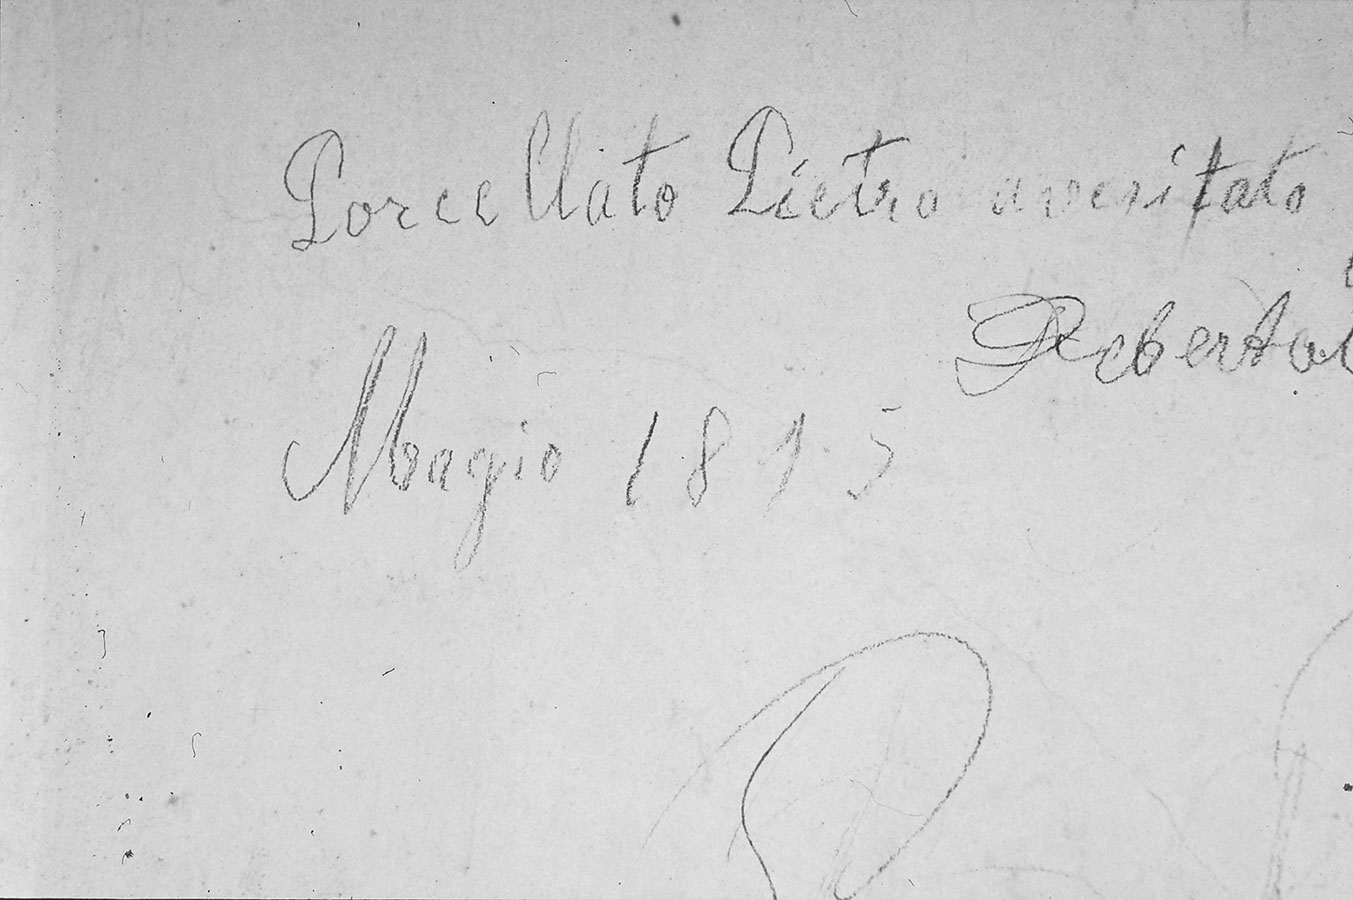 Porcellato Pietro avesitato
Magio 1815